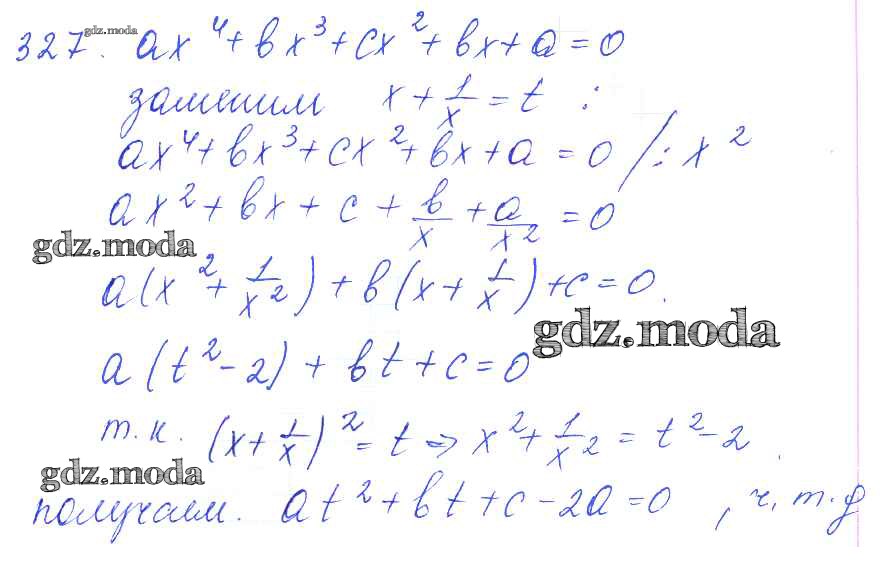 327. ax⁴ + bx³ + cx² + bx + a = 0
gdz.moda
заменим x + 1/x = t :
ax⁴ + bx³ + cx² + bx + a = 0 / : x²
ax² + bx + c + b/x + a/x² = 0
gdz.moda
a(x² + 1/x²) + b(x + 1/x) + c = 0.
gdz.moda
a(t² - 2) + bt + c = 0
т.к. (x + 1/x)² = t ⇒ x² + 1/x² = t² - 2
gdz.moda
получаем. at² + bt + c - 2a = 0 , ч.т.д